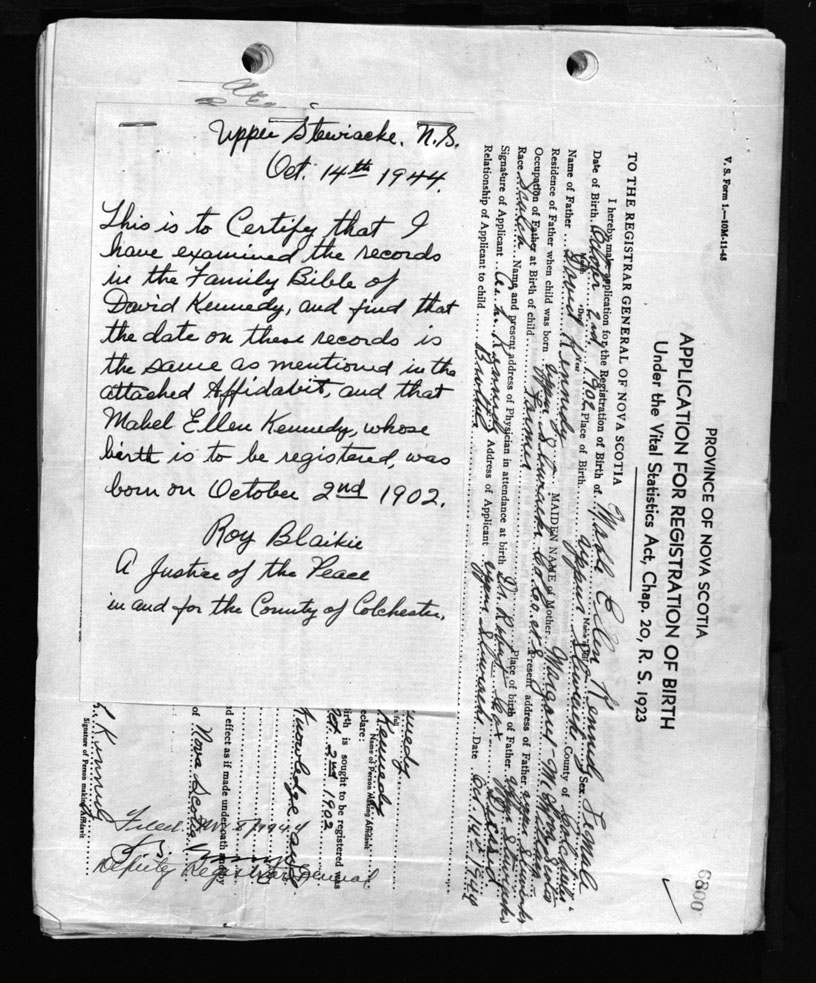 Upper Stewiacke, N.S.
Oct. 14th 1944.
This is to Certify that I
have examined the records
in the Family Bible of
David Kennedy, and find that
the date on these records is
the same as mentioned in the
attached Affidabit, and that
Mabel Ellen Kennedy, whose
birth is to be registered, was
born on October 2nd 1902.
Roy Blaikie
A Justice of the Peace
in and for the County of Colchester,
V. S. Form 1.—10M-11-43
6800
PROVINCE OF NOVA SCOTIA
APPLICATION FOR REGISTRATION OF BIRTH
Under the Vital Statistics Act, Chap. 20, R. S. 1923
TO THE REGISTRAR GENERAL OF NOVA SCOTIA
I hereby make application for the Registration of Birth of Mabel Ellen Kennedy Sex Female
Date of Birth October 2nd 1902 Place of Birth Upper Stewiacke County of Colchester
Name of Father David Kennedy MAIDEN NAME of Mother Margaret
Residence of Father when child was born Upper Stewiacke Col. Co. N.S. Present address of Father Upper Stewiacke
Occupation of Father at Birth of child Farmer Place of birth of Father Upper Stewiacke
Race Scotch Name and present address of Physician in attendance at birth Dr. Cox Deceased
Signature of Applicant Kennedy Address of Applicant Upper Stewiacke Date Oct 14th 1944
Relationship of Applicant to child Brother
nedy
Kennedy
Name of Person Making Affidavit
eclare:
irth is sought to be registered was
Oct. 2nd 1902
Knowledge
nd effect as if made under oath
of Nova Scotia
Kennedy
Signature of Person making Affidavit
Filed 1944
Deputy Registrar General